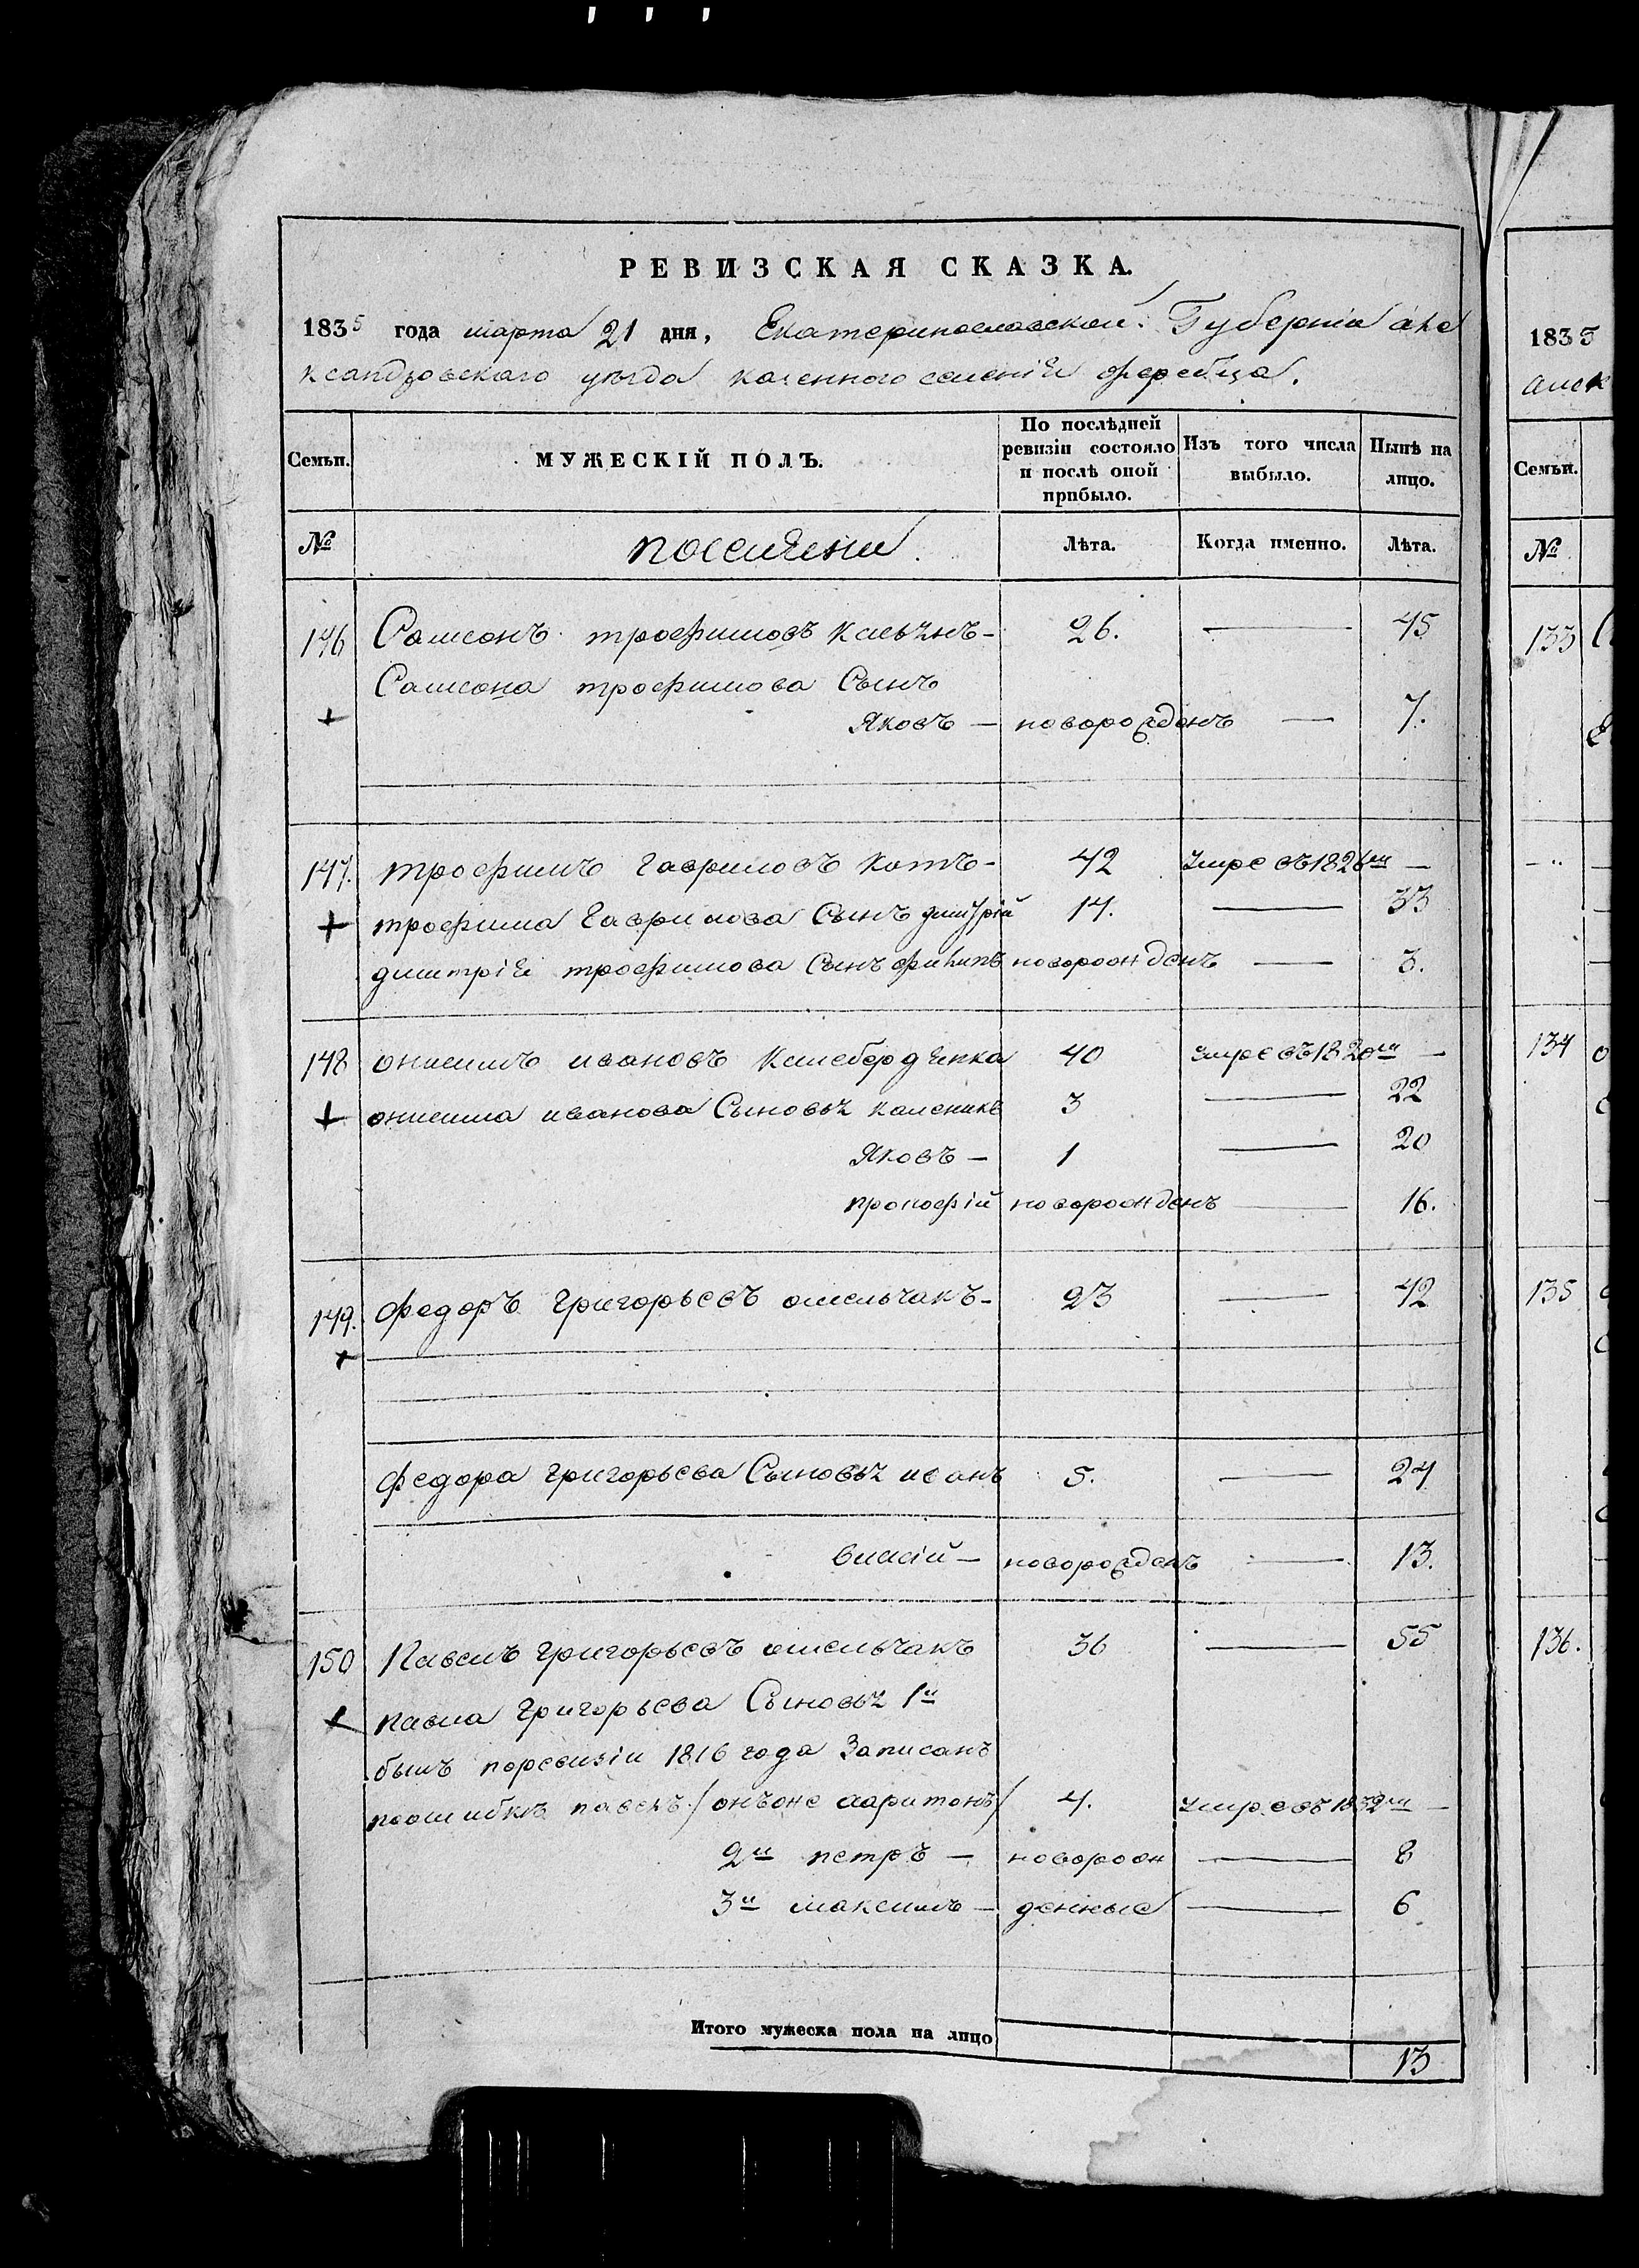 РЕВИЗСКАЯ СКАЗКА.
1835 года марта 21 дня, Екатеринославской Губерніи але
ксандровскаго уѣзда казенного селенія
Семьи.
МУЖЕСКІЙ ПОЛЪ.
По послѣдней ревизіи состояло и послѣ оной прибыло.
Изъ того числа выбыло.
Нынѣ на лицо.
№
поселяни.
Лѣта.
Когда именно.
Лѣта.
146 Самсонъ трофимовъ 26. — 45
Самсона трофимова Сынъ
Яковъ — новорожденъ — 7.
147. трофимъ гавриловъ котъ - 42 умре въ 1826м —
трофима гаврилова Сынъ дмитрій 14. — 33
дмитрія трофимова Сынъ филипъ новорожденъ — 3.
148 онисимъ ивановъ кмебердянка 40 умре въ 1820м —
онисима иванова Сыновья каленикъ 3 — 22
Яковъ — 1 — 20
прокофій новорожденъ — 16.
149. федоръ григорьевъ омельчакъ - 23 — 42
федора григорьева Сыновья иванъ 5. — 24
власій — новорожденъ — 13.
150 Павелъ григорьевъ омельчакъ 36 — 55
павла григорьева Сыновья 1й
былъ поревизіи 1816 года Записанъ
поошибкѣ павелъ / онъоне харитонъ / 4. умре въ 1832м —
2й петръ — новорож — 8
3й максимъ — денные — 6
Итого мужеска пола на лицо
13
1835
алек
Семьи.
№
133
134
135
136.